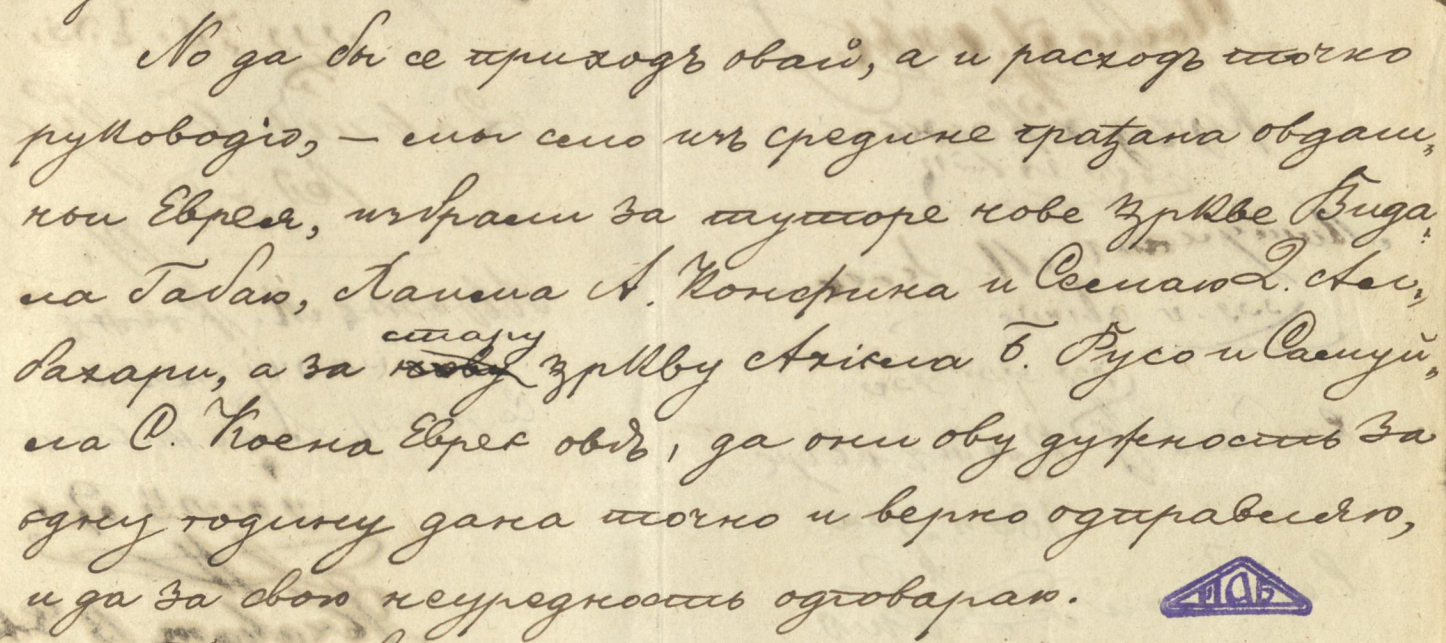 Но да бы се приходъ овай, а и расходъ точно
руководіо, — мы смо изъ средине грађана овдаш„
ньи Еврея, избрали за туторе нове цркве Бида„
ла Габаю, Хаима А. Конфина и Семаю Д. Ал„
бахари, а за стару цркву Ахіела Б. Русо и Самуй„
ла С. Коена Еврее овд., да они ову дужность за
едну годину дана точно и верно одправляю,
и да за свою неуредность одговараю.